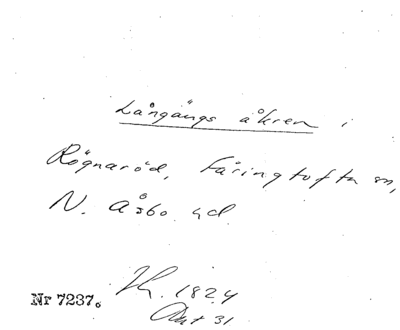 Långångs åkren i
Rögnaröd, Färingtofta sn,
N. Åsbo hd.
Nr 7237. 1824
31